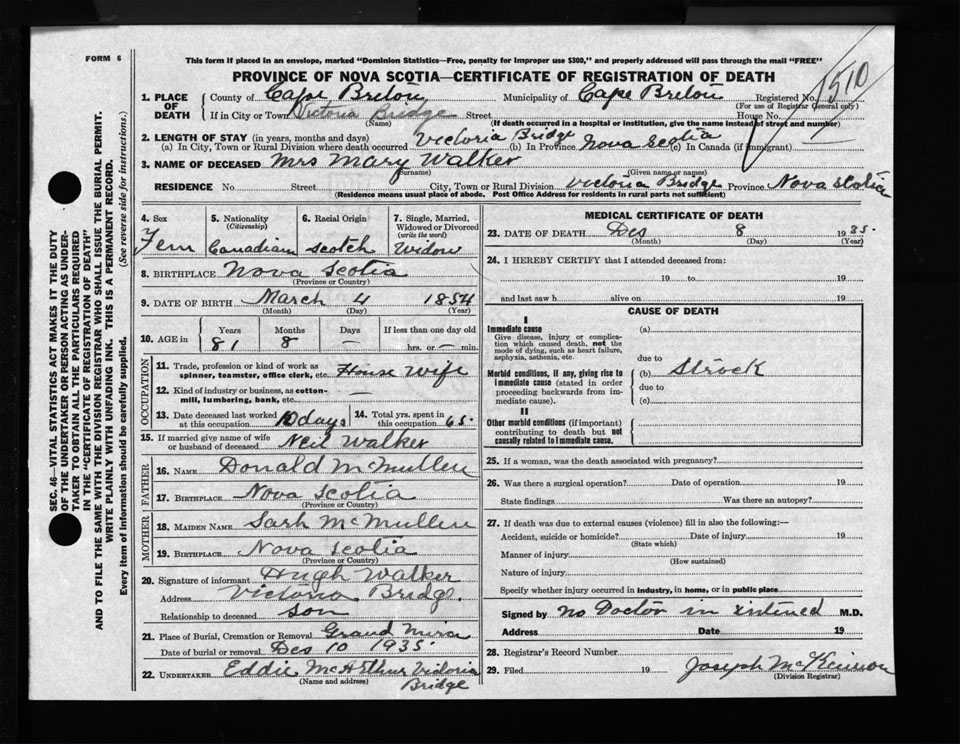 FORM 6
This form if placed in an envelope, marked "Dominion Statistics—Free, penalty for improper use $300," and properly addressed will pass through the mail "FREE"
PROVINCE OF NOVA SCOTIA—CERTIFICATE OF REGISTRATION OF DEATH
1510
1. PLACE OF DEATH
County of Cape Breton Municipality of Cape Breton Registered No.
(For use of Registrar General only)
If in City or Town Victoria Bridge Street House No.
(Name) (If death occurred in a hospital or institution, give the name instead of street and number)
2. LENGTH OF STAY (in years, months and days)
(a) In City, Town or Rural Division where death occurred Victoria Bridge (b) In Province Nova Scotia (c) In Canada (if immigrant)
3. NAME OF DECEASED Mrs Mary Walker
(Surname) (Given name or names)
RESIDENCE No. Street City, Town or Rural Division Victoria Bridge Province Nova Scotia
(Residence means usual place of abode. Post Office Address for residents in rural parts not sufficient)
4. Sex Fem
5. Nationality (Citizenship) Canadian
6. Racial Origin Scotch
7. Single, Married, Widowed or Divorced (write the word) Widow
8. BIRTHPLACE Nova Scotia
(Province or Country)
9. DATE OF BIRTH March 4 1854
(Month) (Day) (Year)
10. AGE in Years Months Days If less than one day old
81 8 — hrs. or — min.
OCCUPATION
11. Trade, profession or kind of work as spinner, teamster, office clerk, etc. House Wife
12. Kind of industry or business, as cotton-mill, lumbering, bank, etc. —
13. Date deceased last worked at this occupation 10 days
14. Total yrs. spent in this occupation 65
15. If married give name of wife or husband of deceased Neil Walker
FATHER
16. NAME Donald McMullen
17. BIRTHPLACE Nova Scotia
(Province or Country)
MOTHER
18. MAIDEN NAME Sarh McMullen
19. BIRTHPLACE Nova Scotia
(Province or Country)
20. Signature of informant Hugh Walker
Address Victoria Bridge.
Relationship to deceased son
21. Place of Burial, Cremation or Removal Grand Mira
Date of burial or removal Des 10 1935
22. UNDERTAKER Eddie Victoria
(Name and address) Bridge
MEDICAL CERTIFICATE OF DEATH
23. DATE OF DEATH Des 8 1935.
(Month) (Day) (Year)
24. I HEREBY CERTIFY that I attended deceased from:
19 to 19
and last saw h alive on 19
CAUSE OF DEATH
I
Immediate cause
Give disease, injury or complication which caused death, not the mode of dying, such as heart failure, asphyxia, asthenia, etc.
(a)
due to
Morbid conditions, if any, giving rise to immediate cause (stated in order proceeding backwards from immediate cause).
(b) Strock
due to
(c)
II
Other morbid conditions (if important) contributing to death but not causally related to immediate cause.
25. If a woman, was the death associated with pregnancy?
26. Was there a surgical operation? Date of operation 19
State findings Was there an autopsy?
27. If death was due to external causes (violence) fill in also the following:—
Accident, suicide or homicide? Date of injury 19
(State which)
Manner of injury
(How sustained)
Nature of injury
Specify whether injury occurred in industry, in home, or in public place
Signed by no Doctor in M.D.
Address Date 19
28. Registrar's Record Number
29. Filed 19 Joseph McKinnon
(Division Registrar)
SEC. 46—VITAL STATISTICS ACT MAKES IT THE DUTY
OF THE UNDERTAKER OR PERSON ACTING AS UNDER-
TAKER TO OBTAIN ALL THE PARTICULARS REQUIRED
IN THE "CERTIFICATE OF REGISTRATION OF DEATH"
AND TO FILE THE SAME WITH THE DIVISION REGISTRAR WHO SHALL ISSUE THE BURIAL PERMIT.
WRITE PLAINLY WITH UNFADING INK. THIS IS A PERMANENT RECORD.
Every item of information should be carefully supplied. (See reverse side for instructions.)